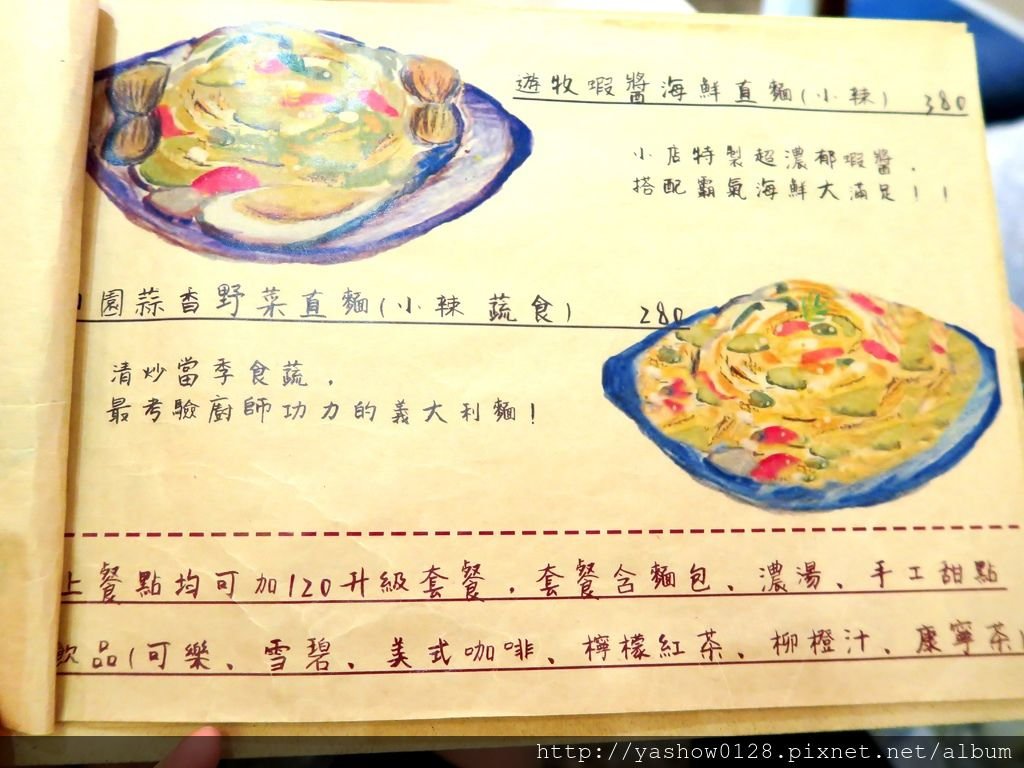 遊牧蝦醬海鮮直麵(小辣) 380
小店特製超濃郁蝦醬,
搭配霸氣海鮮大滿足!!
園蒜香野菜直麵(小辣 蔬食) 280
清炒當季食蔬,
最考驗廚師功力的義大利麵!
上餐點均可加120升級套餐,套餐含麵包、濃湯、手工甜點
飲品(可樂、雪碧、美式咖啡、檸檬紅茶、柳橙汁、康寧茶)
http://yashow0128.pixnet.net/album